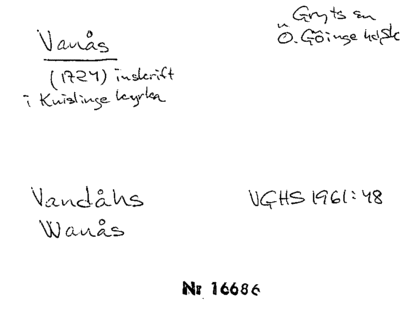 Vanås
Gryts sn
Ö. Göinge hd, Sk
(1724) inskrift
i Knislinge kyrka
Vandåhs
VGHS 1961:48
Wanås
Nr 16686